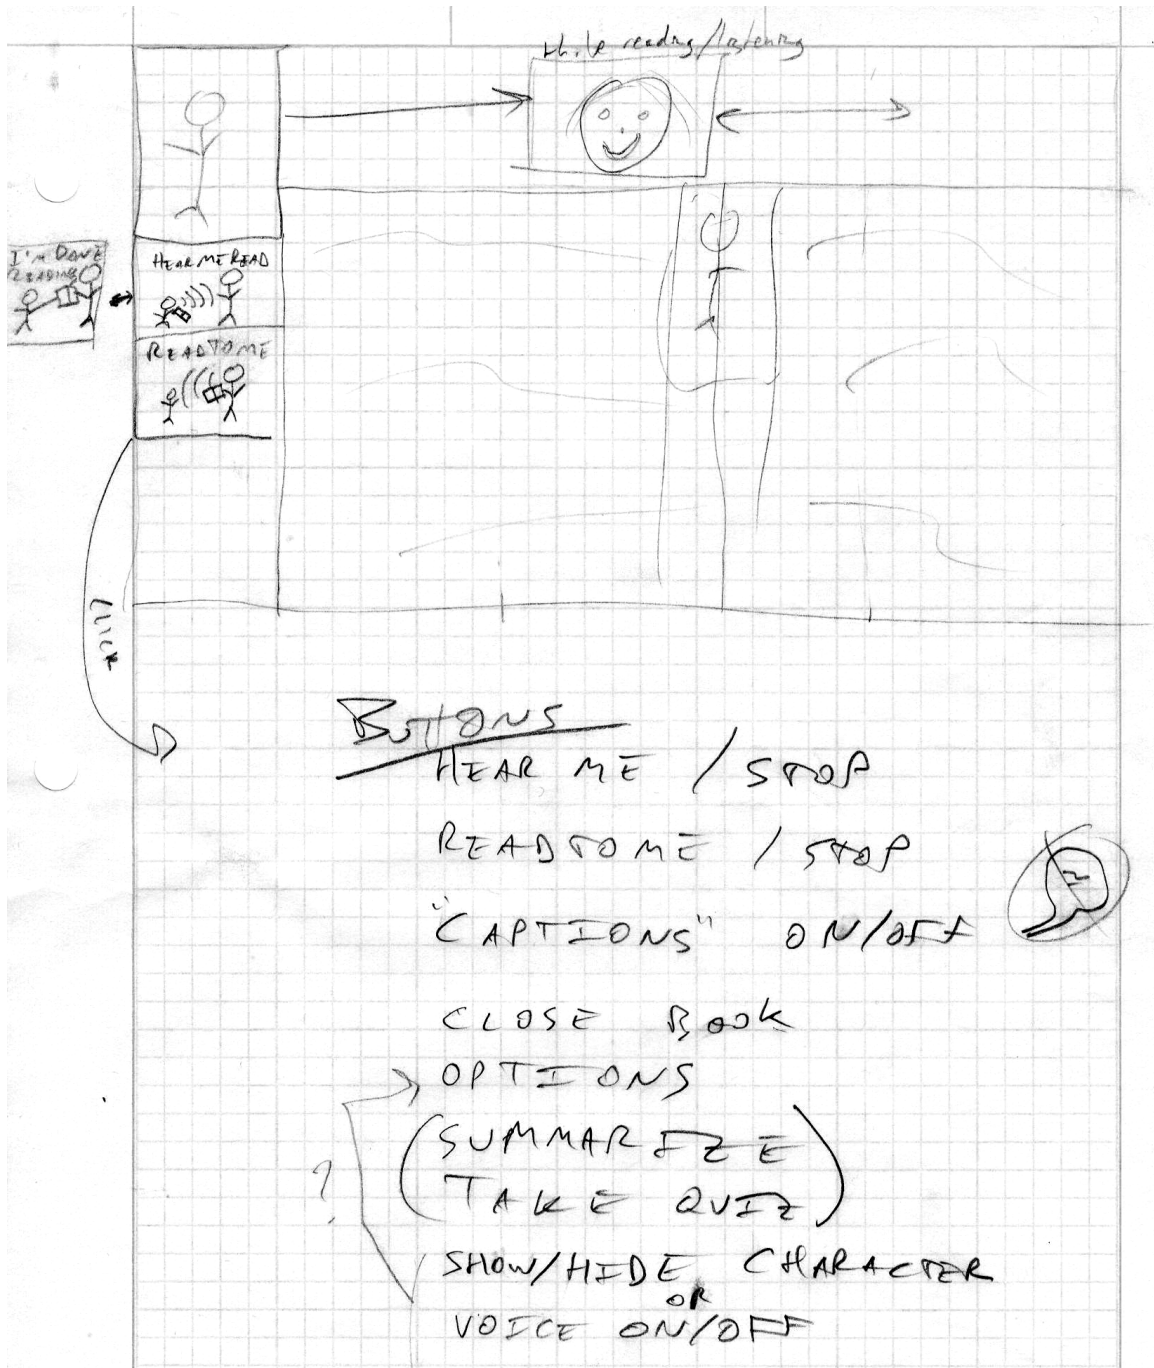 while reading/listening
I'M DONE
READING
HEAR ME READ
READ TO ME
CLICK
BUTTONS
HEAR ME / STOP
READ TO ME / STOP
"CAPTIONS" ON/OFF
CLOSE BOOK
OPTIONS
(SUMMARIZE
TAKE QUIZ)
?
SHOW/HIDE CHARACTER
OR
VOICE ON/OFF